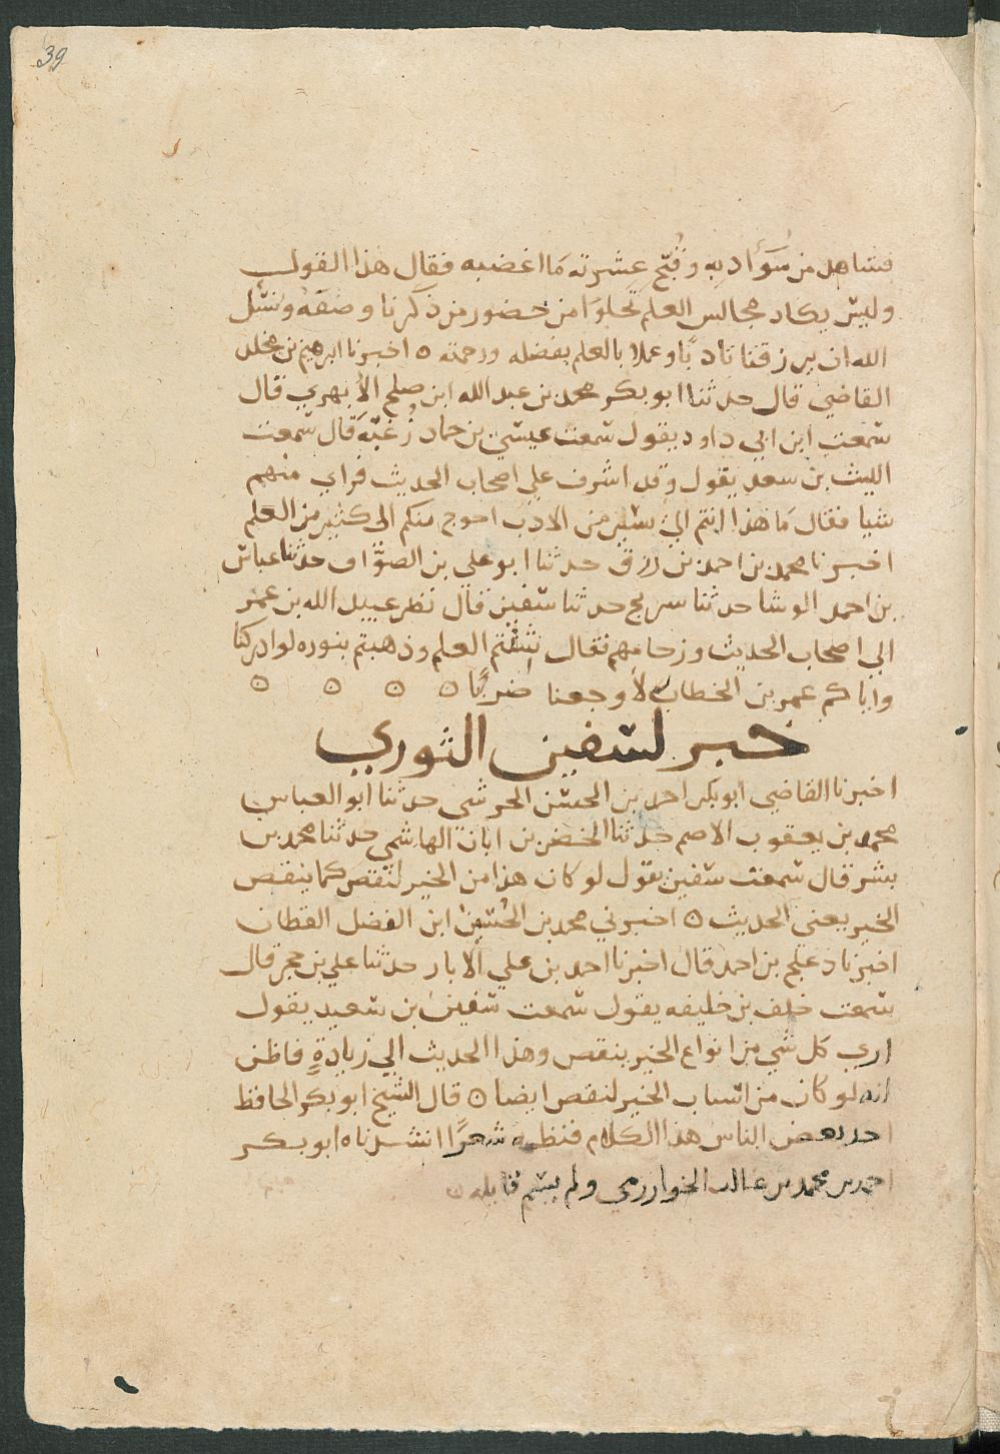 39
فشاهد من سوأ ادبه وقبح عشرته ما اغضبه فقال هذا القول
وليس يكاد مجالس العلم تخلوا من حضور من ذكرنا وصفه ونسل
الله ان يرزقنا تادبًا وعملا بالعلم بفضله ورحمته ۝ اخبرنا ابرهيم بن مخلد
القاضي قال حدثنا ابو بكر محمد بن عبد الله ابن صلح الأبهري قال
سمعت ابن ابي داود يقول سمعت عيسى بن حماد زغبة قال سمعت
الليث بن سعد يقول وقد اشرف علي اصحاب الحديث فراي منهم
شيا فقال ما هذا انتم الي يسير من الادب احوج منكم الى كثير من العلم
اخبرنا محمد بن احمد بن رزق حدثنا ابو علي بن الصواف حدثنا عباس
بن احمد الوشا حدثنا سريج حدثنا سفين قال نظر عبيد الله بن عمر
الي اصحاب الحديث وزحامهم فقال شنتم العلم وذهبتم بنوره لو ادركنا
واياكم عمر بن الخطاب لأوجعنا ضربًا ۝ ۝ ۝ ۝
خبر لسفين الثوري
اخبرنا القاضي ابو بكر احمد بن الحسن الحرشي حدثنا ابو العباس
محمد بن يعقوب الاصم حدثنا الخضر بن ابان الهاشمي حدثنا محمد بن
بشر قال سمعت سفين يقول لو كان هذا من الخير لنقص كما ينقص
الخير يعني الحديث ۝ اخبرني محمد بن الحسين ابن الفضل القطان
اخبرنا دعلج بن احمد قال اخبرنا احمد بن علي الأبار حدثنا علي بن حجر قال
سمعت خلف بن خليفه يقول سمعت سفين بن سعيد يقول
اري كل شي من انواع الخير ينقص وهذا الحديث الي زيادةٍ فاظن
انه لو كان من اسباب الخير لنقص ايضا ۝ قال الشيخ ابو بكر الحافظ
احد بعض الناس هذا الكلام فنظمه شعرًا انشدناه ابو بكر
احمد بن محمد بن غالب الخوارزمي ولم يسم قايله ۝